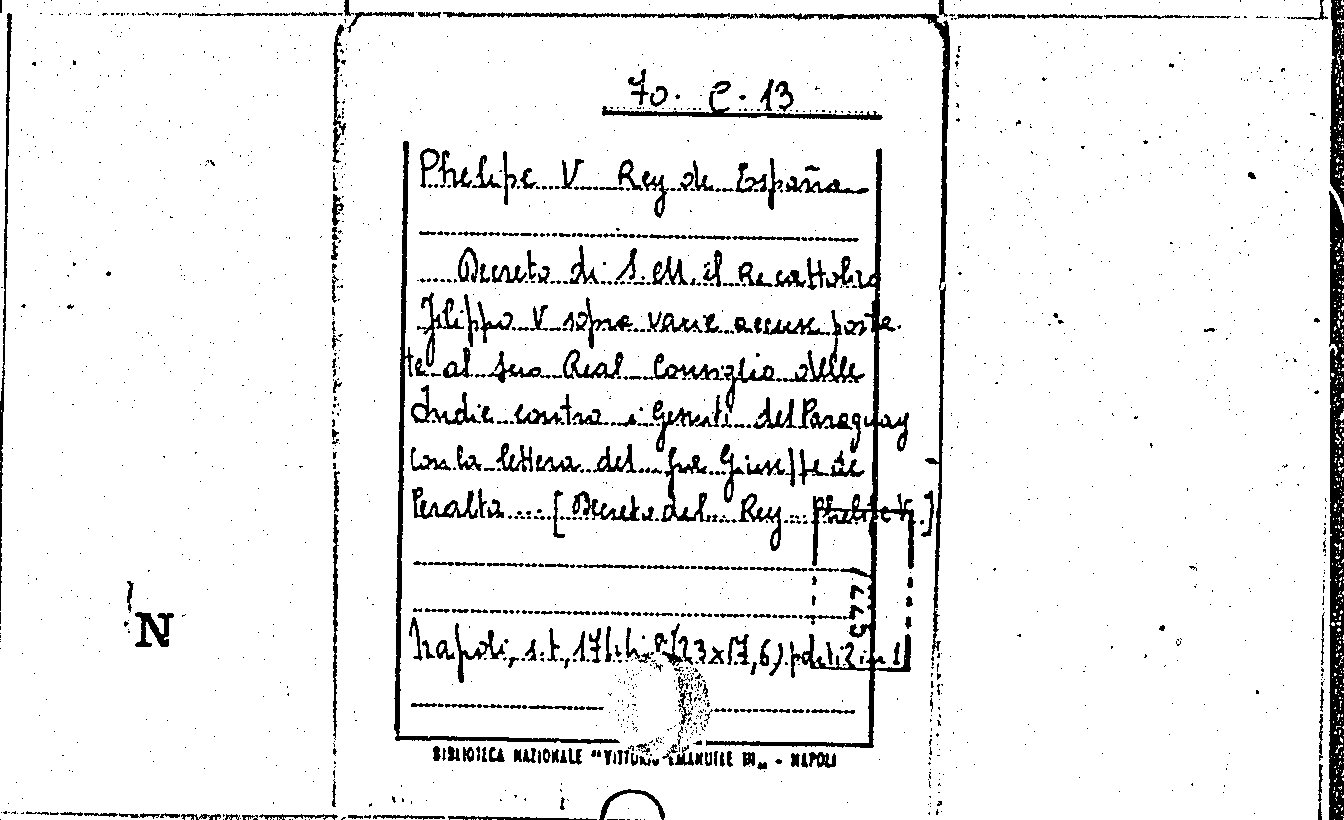 70. C. 13
Phelipe V Rey de España
Decreto di S. M. il Re cattolico
Filippo V sopra varie accuse porta
te al suo Real Consiglio delle
Indie contro i Gesuiti del Paraguay
con la lettera del fu Giuseppe de
Peralta ... [Decreto del Rey Phelipe V.]
577
Napoli, s.t, 1744 8° (23x17,6)
BIBLIOTECA NAZIONALE "VITTORIO EMANUELE III" - NAPOLI
N